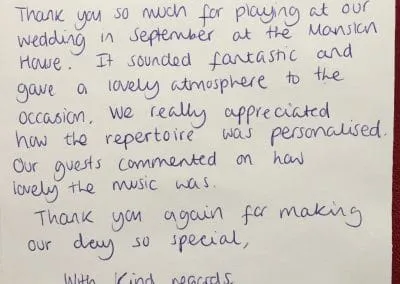 Thank you so much for playing at our
wedding in September at the Mansion
House. It sounded fantastic and
gave a lovely atmosphere to the
occasion. We really appreciated
how the repertoire was personalised.
Our guests commented on how
lovely the music was.
Thank you again for making
our day so special,
With kind regards